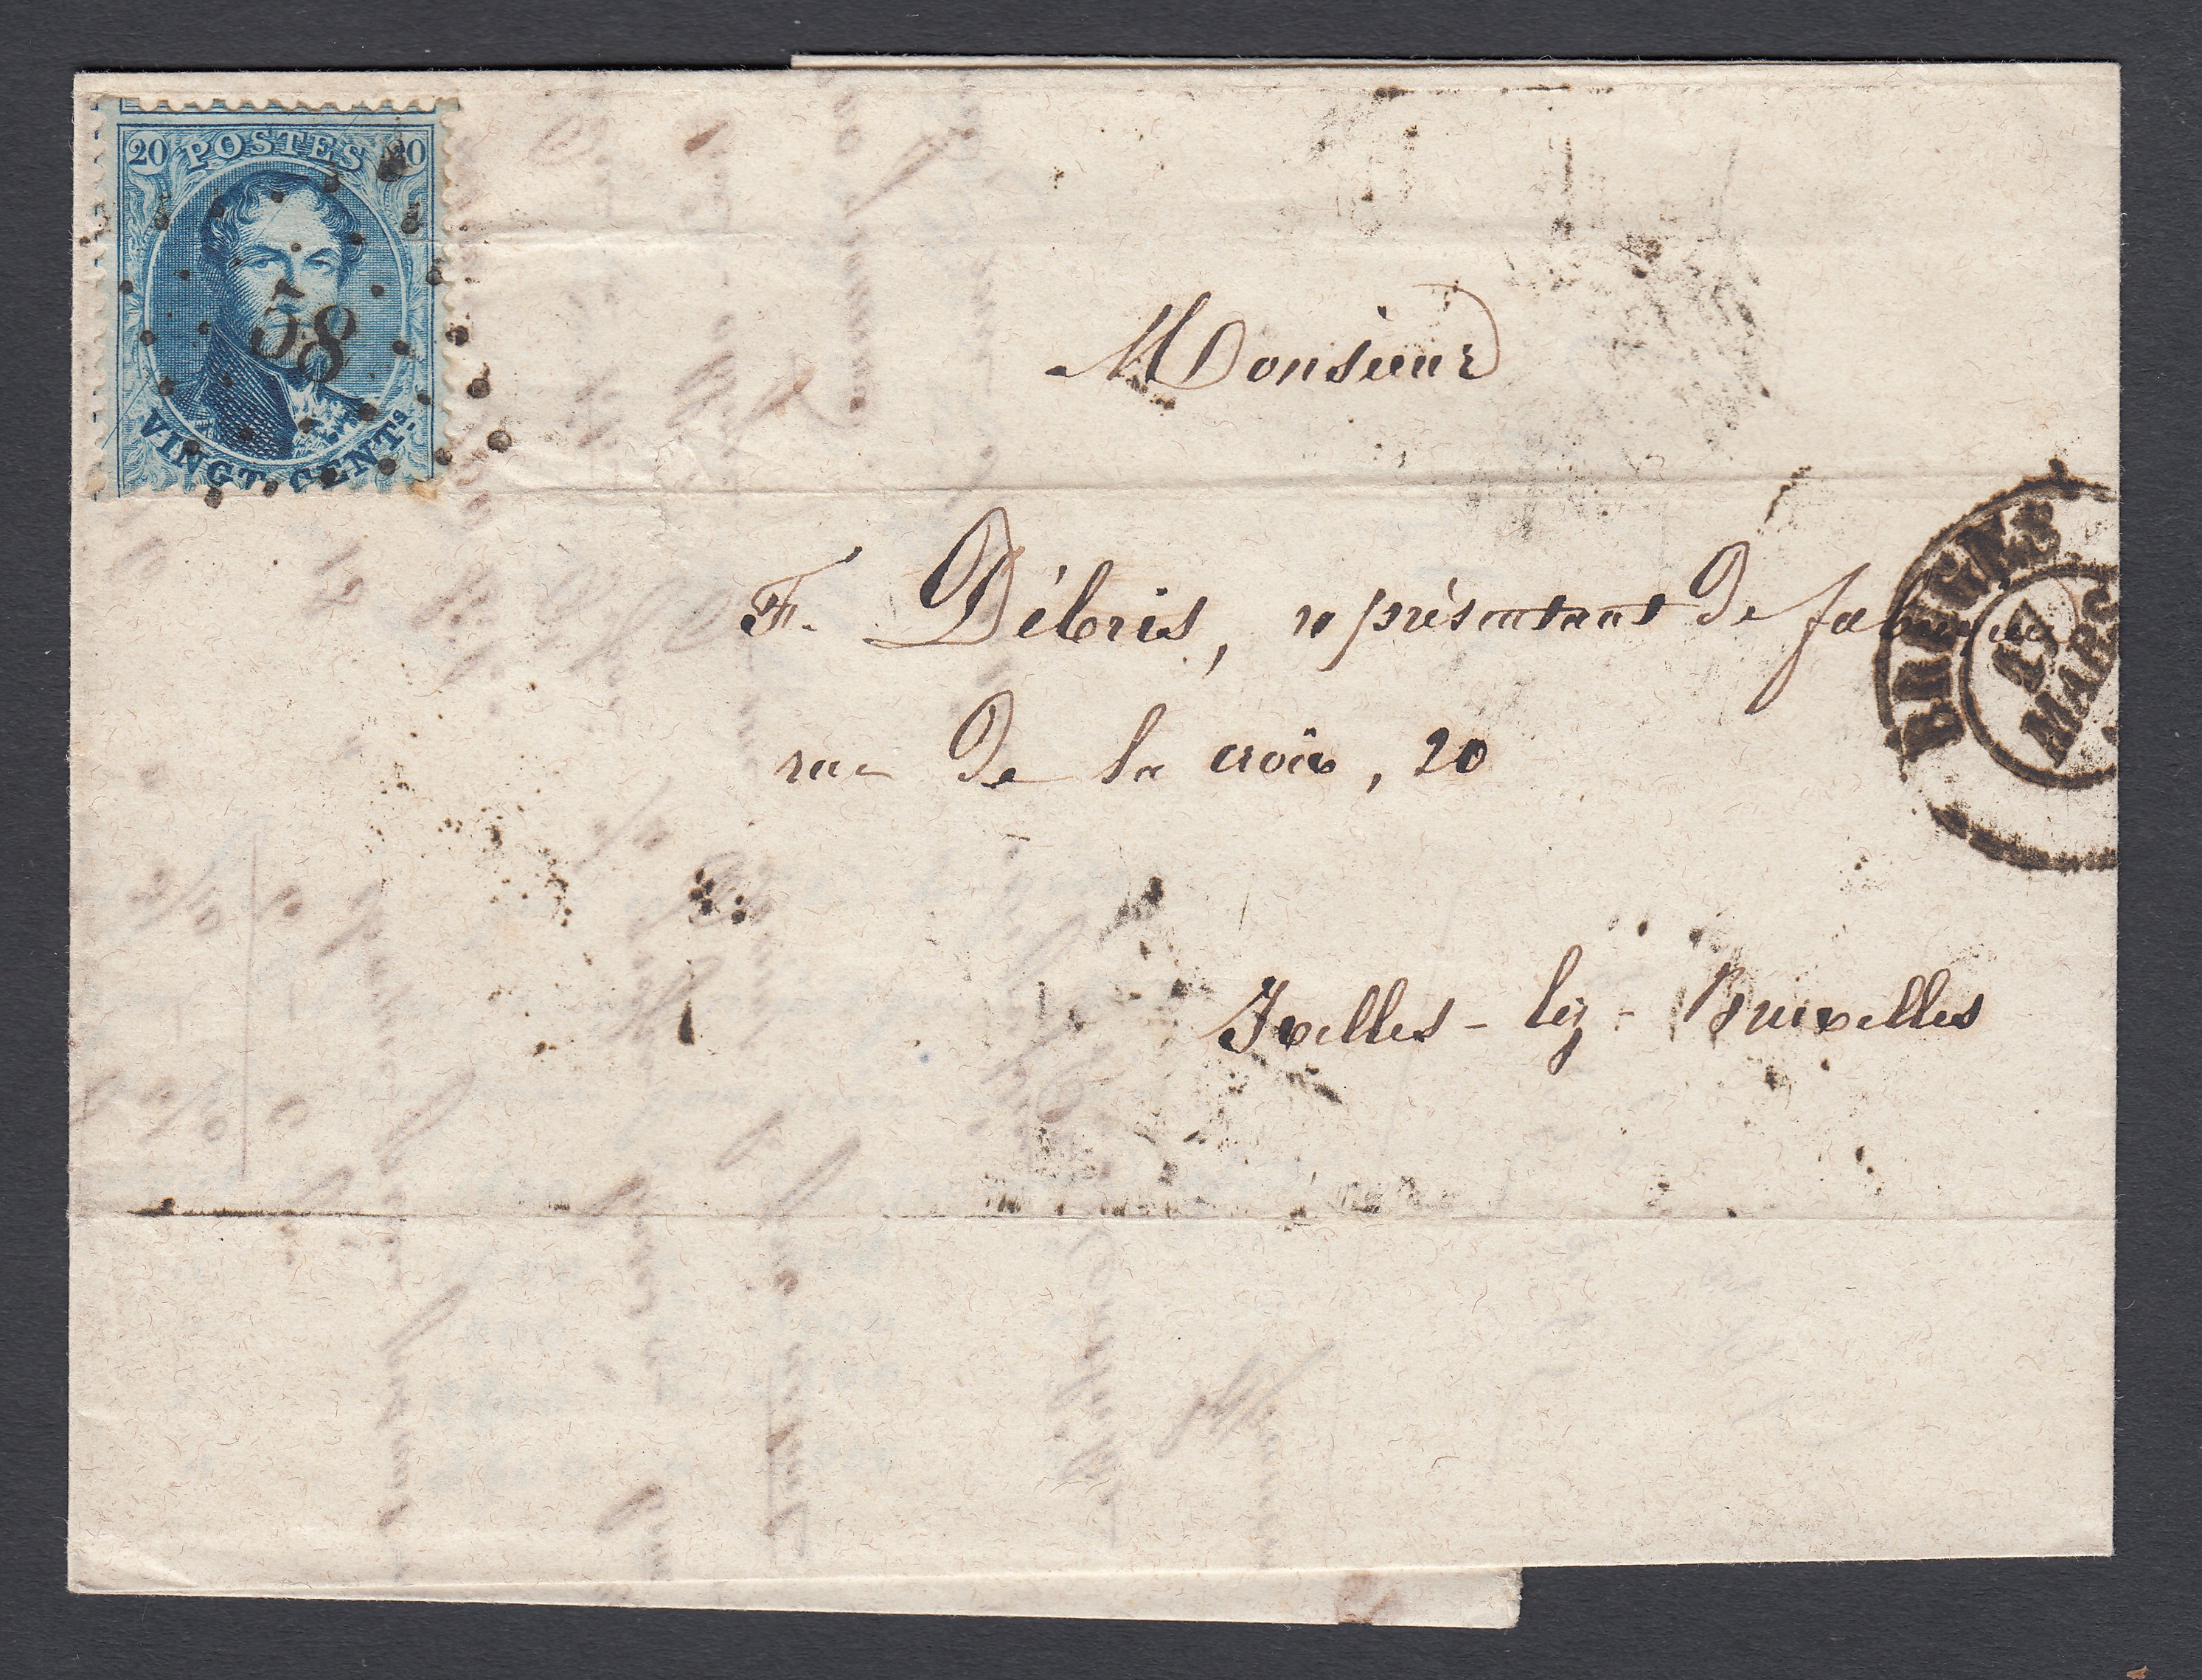 20 POSTES 20
58
VINGT CENTS.
Monsieur
F. Débris, représentant de fabriques
rue de la croix, 20
BRUGES
17
MARS
Ixelles-lez-Bruxelles